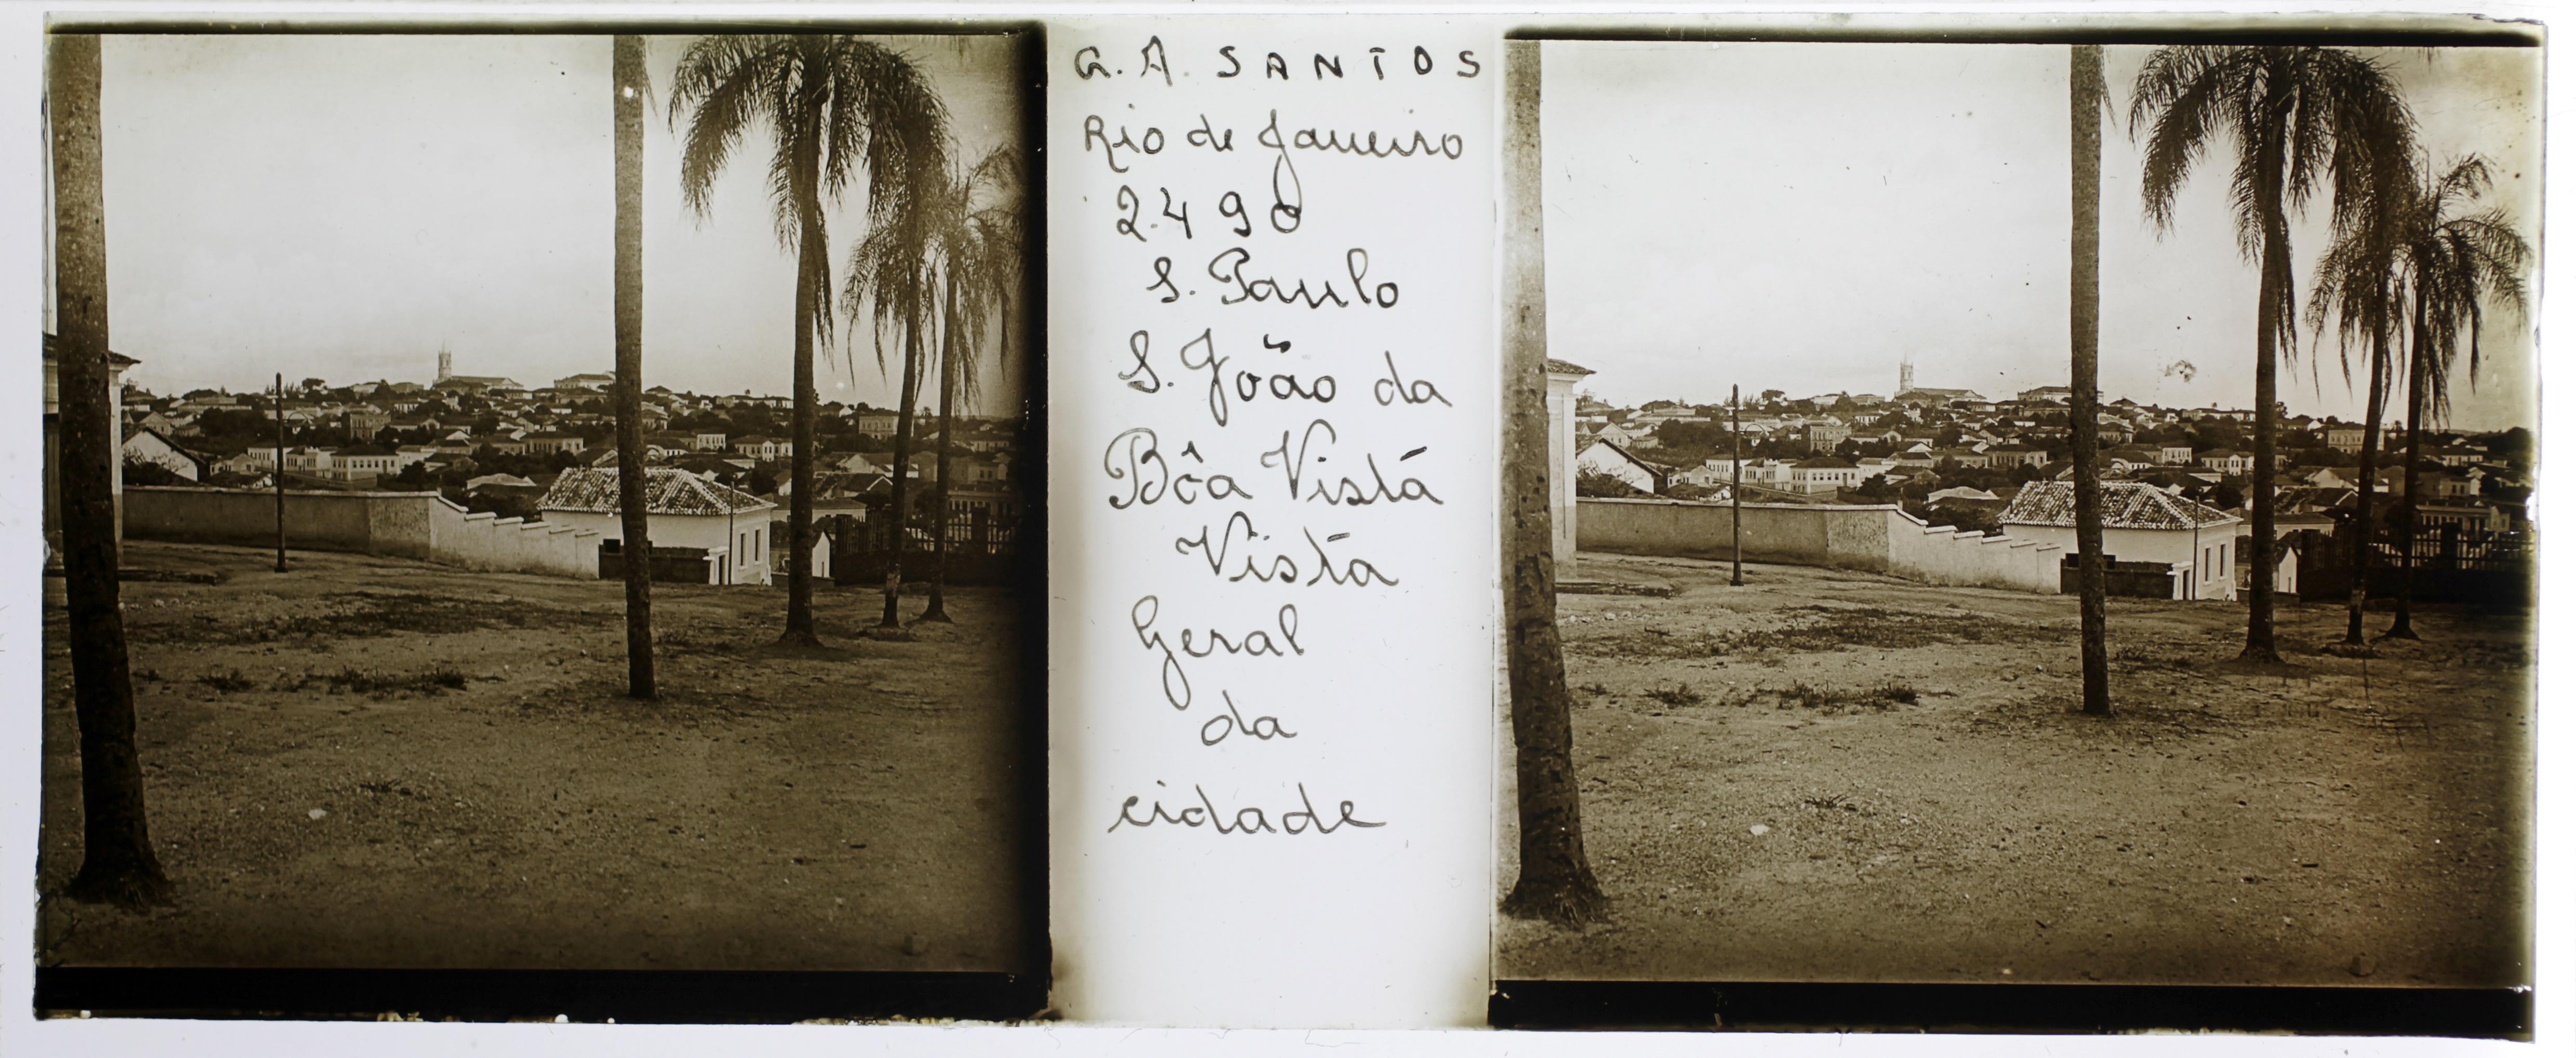 G. A. SANTOS
Rio de Janeiro
2.490
S. Paulo
S. João da
Bôa Vista
Vista
Geral
da
cidade